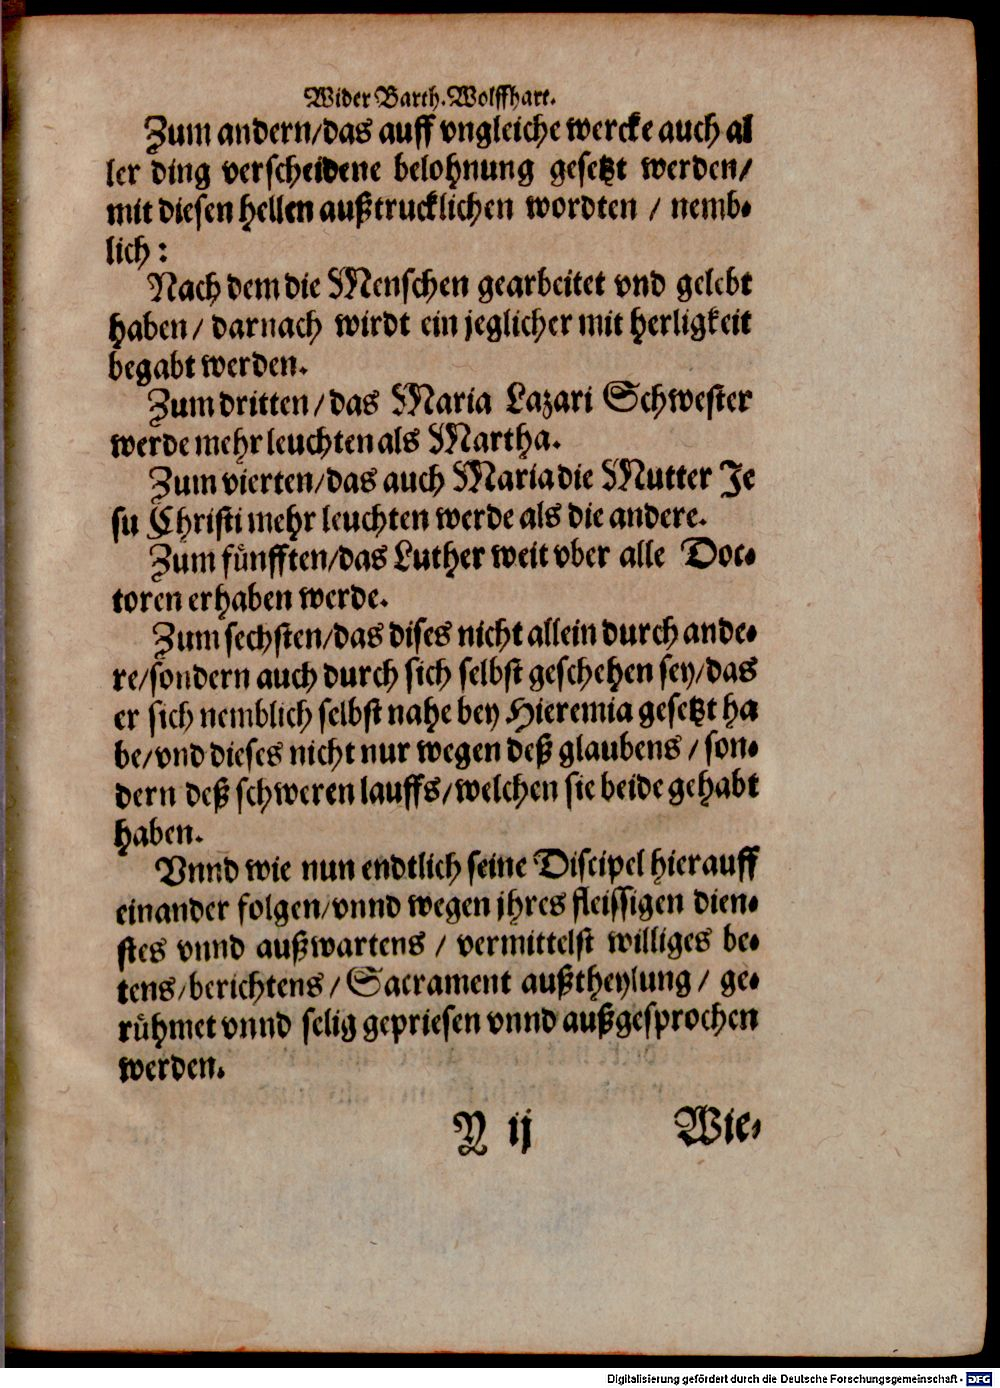 Wider Barth. Wolffhart.
Zum andern/das auff vngleiche wercke auch al
ler ding verscheidene belohnung gesetzt werden/
mit diesen hellen außtrucklichen wordten / nemb-
lich:
Nach dem die Menschen gearbeitet vnd gelebt
haben/ darnach wirdt ein jeglicher mit herligkeit
begabt werden.
Zum dritten/das Maria Lazari Schwester
werde mehr leuchten als Martha.
Zum vierten/das auch Maria die Mutter Je
su Christi mehr leuchten werde als die andere.
Zum fünfften/das Luther weit vber alle Doc-
toren erhaben werde.
Zum sechsten/das dises nicht allein durch ande-
re/sondern auch durch sich selbst geschehen sey/das
er sich nemblich selbst nahe bey Hieremia gesetzt ha
be/vnd dieses nicht nur wegen deß glaubens / son-
dern deß schweren lauffs/welchen sie beide gehabt
haben.
Vnnd wie nun endtlich seine Discipel hierauff
einander folgen/vnnd wegen jhres fleissigen dien-
stes vnnd außwartens / vermittelst williges be-
tens/berichtens / Sacrament außtheylung / ge-
rühmet vnnd selig gepriesen vnnd außgesprochen
werden.
Y ij Wie-
Digitalisierung gefördert durch die Deutsche Forschungsgemeinschaft - DFG